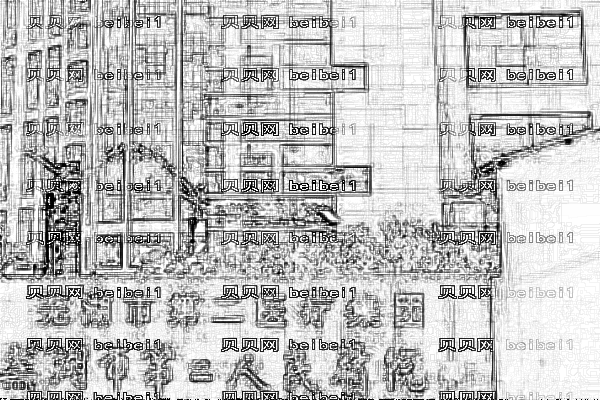 贝贝网 beibei1 贝贝网 beibei1 贝贝网 beibei1
贝贝网 beibei1 贝贝网 beibei1 贝贝网 beibei1
贝贝网 beibei1 贝贝网 beibei1 贝贝网 beibei1
贝贝网 beibei1 贝贝网 beibei1 贝贝网 beibei1
贝贝网 beibei1 贝贝网 beibei1 贝贝网 beibei1
贝贝网 beibei1 贝贝网 beibei1 贝贝网 beibei1
芜湖市第二医疗集团
贝贝网 beibei1 贝贝网 beibei1 贝贝网 beibei1
芜湖市第二人民医院
贝贝网 beibei1 贝贝网 beibei1 贝贝网 beibei1